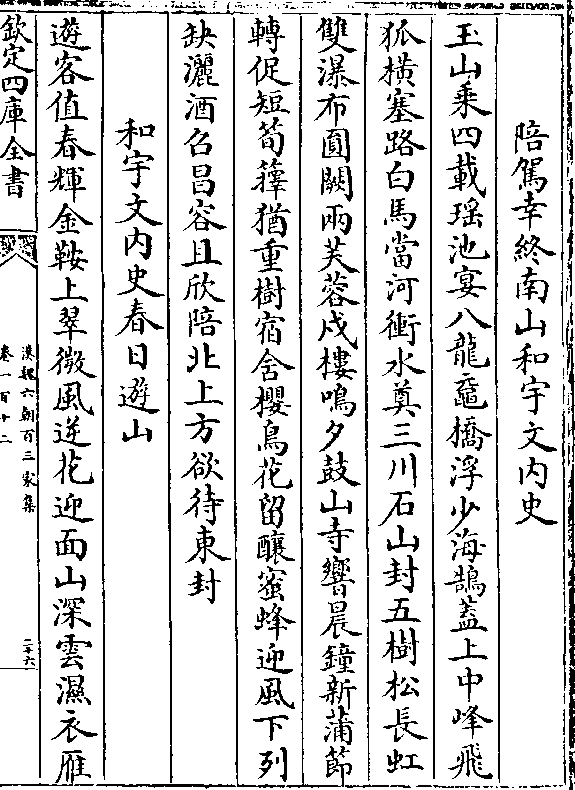 陪駕幸終南山和宇文内史
玉山乗四載瑶池宴八龍鼉橋浮少海鵠葢上中峰飛
狐横塞路白馬當河衝水奠三川石山封五樹松長虹
雙瀑布圓闕兩芙蓉戍樓鳴夕鼓山寺響晨鐘新蒲節
轉促短筍籜猶重樹宿含櫻鳥花留釀蜜蜂迎風下列
缺灑酒召昌容且欣陪北上方欲待東封
和宇文内史春日遊山
遊客值春輝金鞍上翠微風逆花迎面山深雲濕衣雁
欽定四庫全書
漢魏六朝百三家集
卷一百十二
二十六